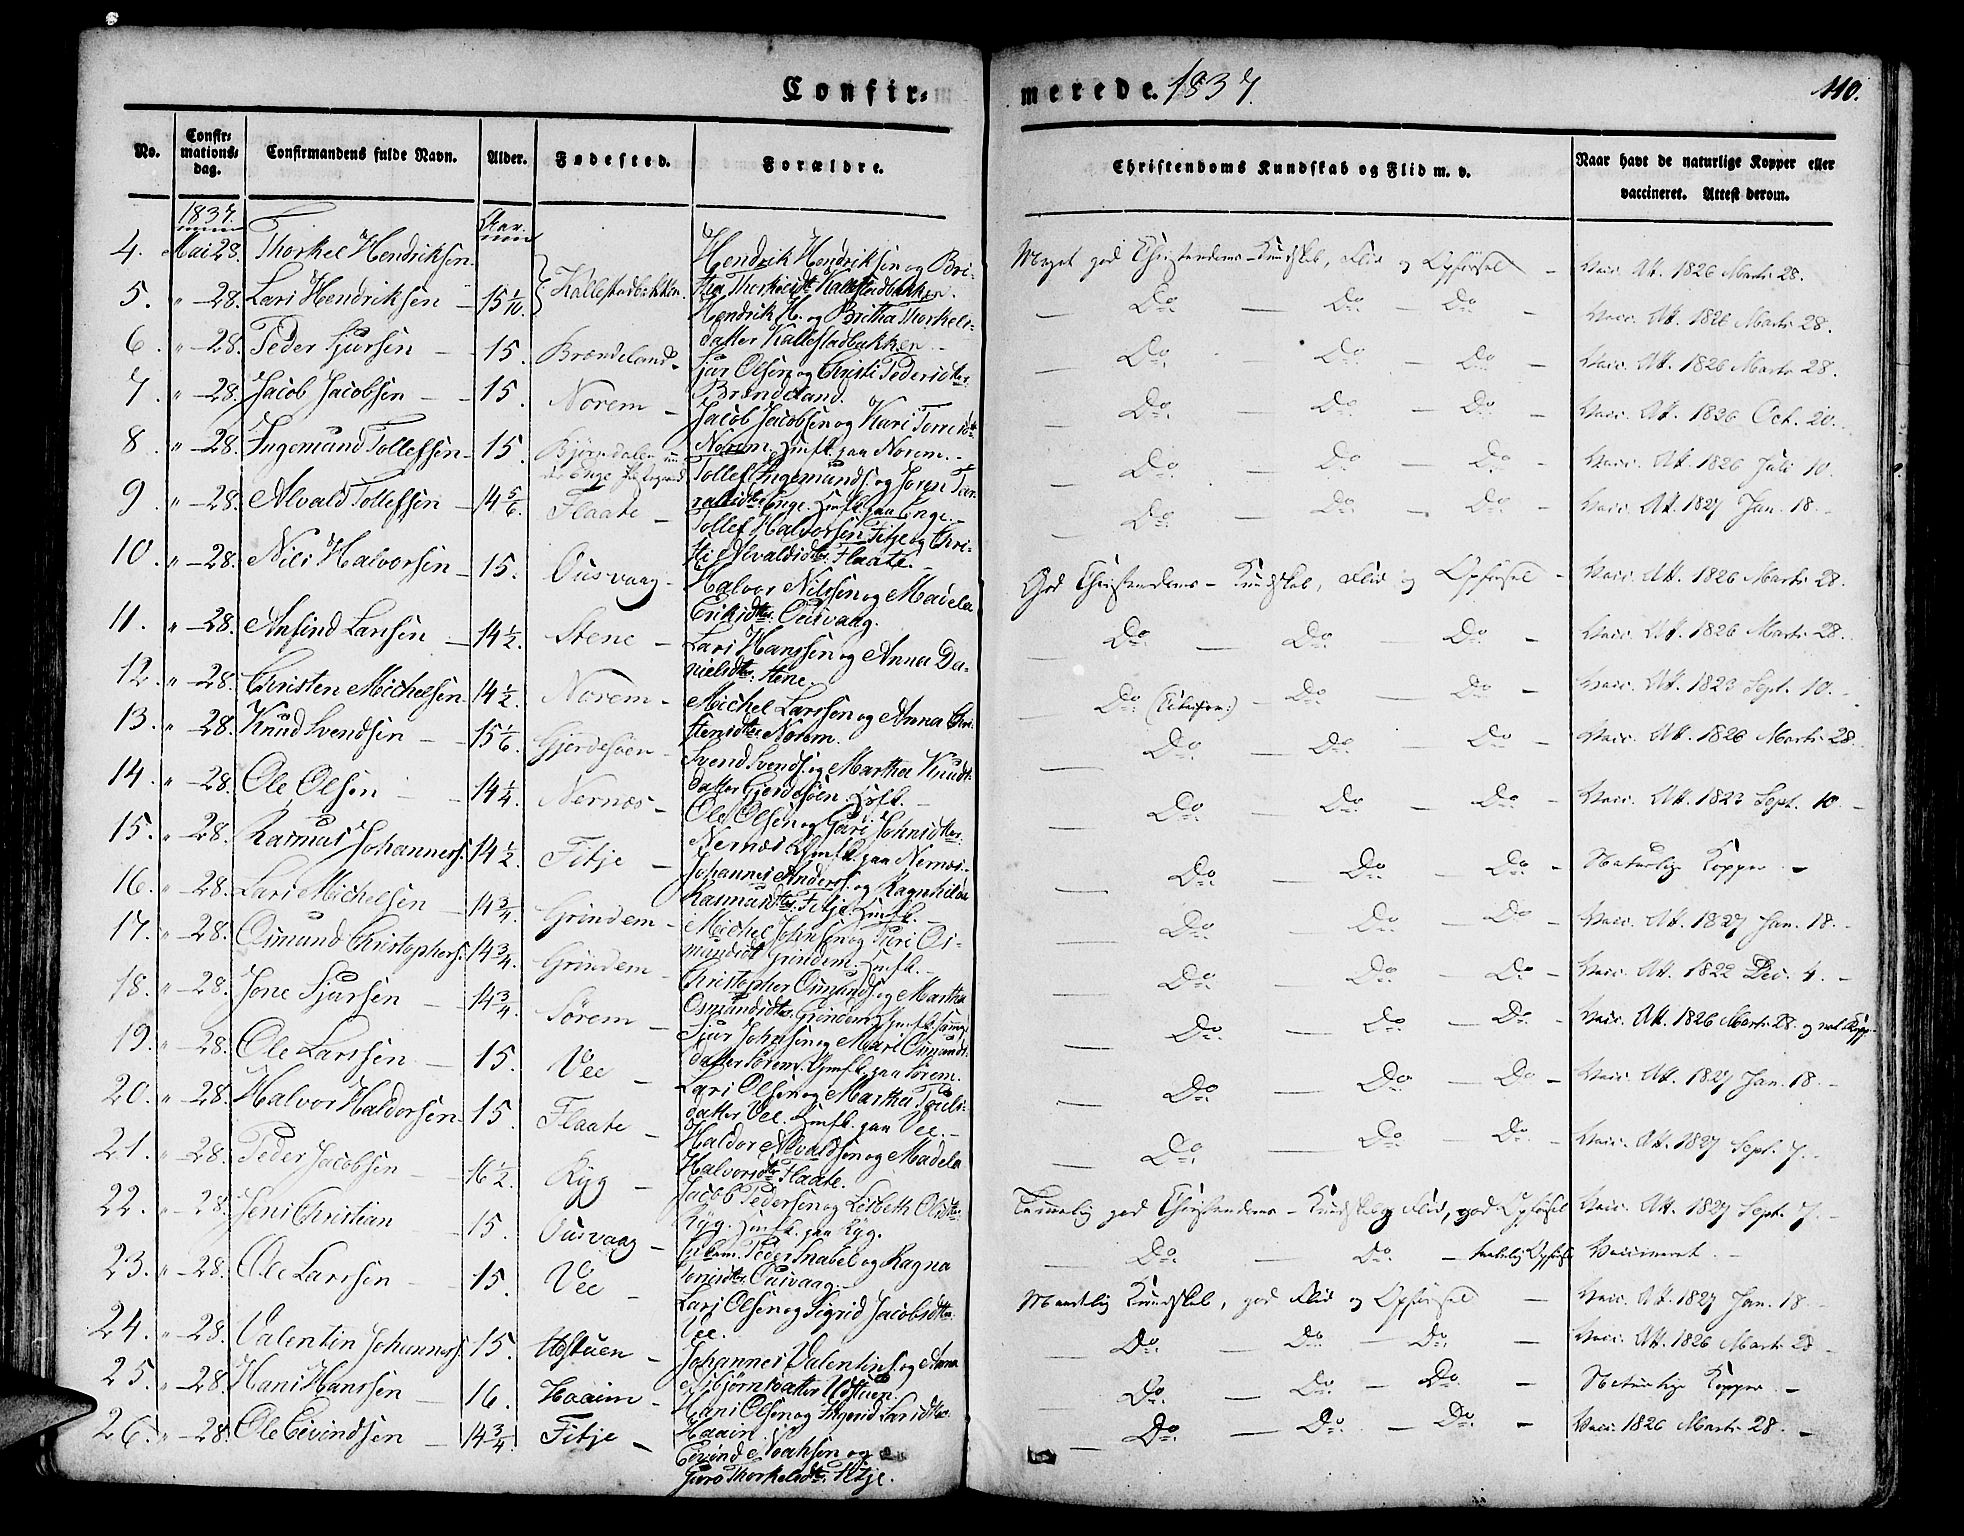 Confir-
merede. 1837.
110.
No.
Confir-
mations-
dag.
Confirmandens fulde Navn.
Alder.
Fødested.
Forældre.
Christendoms Kundskab og Flid m. v.
Naar havt de naturlige Kopper eller
vaccineret. Attest derom.
1837.
Aar.
4. Mai 28. Thorkel Hendriksen
Hendrik Hendriksen og Bri-
tha Kallestadbakken.
Meget god Christendoms-Kundskab, Flid og Opførsel -
Vacc. Att. 1826 Marts 28.
5. " - 28. Lars Hendriksen - 15 1/10. Kallestadbakken.
Hendrik H. og Britha Thorkels-
datter Kallestadbakken -
- Do - Do - Do
Vacc. Att. 1826 Marts 28.
6. " - 28. Peder Sjursen - 15. Brændeland -
Sjur Olsen og Christi Pedersdtr
Brændeland.
- Do - Do - Do
Vacc. Att. 1826 Marts 28.
7. " - 28. Jacob Jacobsen - 15. Norem -
Jacob Jacobsen og Kari
Norem, Huusf. paa Norem. -
- Do - Do - Do -
Vacc. Att. 1826 Oct. 20.
8. " - 28. Ingemund Tollefsen - 15. Bjørndalen
Enge
Tollef Ingemunds. og Joren
Enge. Huusf. paa Enge. -
- Do - Do - Do -
Vacc. Att. 1826 Juli 10.
9. " - 28. Alvald Tollefsen - 14 5/6. Flaate -
Tollef Halvorsen Fitje og Chri-
sti Alvaldsdtr Flaate. -
- Do - Do - Do -
Vacc. Att. 1827 Jan. 18. -
10. " - 28. Nils Halvorsen - 15. Ousvaag -
Halvor Nilssen og Madela
Eriksdtr. Ousvaag.
God Christendoms-Kundskab, Flid og Opførsel -
Vacc. Att. 1826 Marts 28.
11. " - 28. Anfind Larssen - 14 1/2. Stene -
Lars Hanssen og Anna Da-
nielsdtr. Stene.
- Do - Do - Do -
Vacc. Att. 1826 Marts 28.
12. " - 28. Christen Michelsen 14 1/2. Norem -
Michel Larssen og Anna Chri-
stensdtr Norem.
- Do - Do - Do -
Vacc. Att. 1823 Sept. 10. -
13. " - 28. Knud Svendsen - 15 1/6. Gjerdesøen -
Svend Svends. og Martha Knuds-
datter Gjerdesøen.
- Do - Do - Do -
Vacc. Att. 1826 Marts 28.
14. " - 28. Ole Olsen - 14 1/4. Nernæs -
Ole Olsen og Guri Johnsdtr.
Nernæs Huusf. paa Nernæs. -
- Do - Do - Do -
Vacc. Att. 1823 Sept. 10 -
15. " - 28. Rasmus Johanness. 14 1/2. Fitje -
Johannes Anders. og Ragnhilda
Rasmusdtr. Fitje. Huusf. -
- Do - Do - Do -
Naturlige Kopper. -
16. " - 28. Lars Michelsen - 14 3/4. Grindem -
Michel Johnsen og Guri Os-
mundsdt Grindem. Huusf. -
- Do - Do - Do -
Vacc. Att. 1827 Jan. 18. -
17. " - 28. Osmund Christophers. 14 3/4. Grindem -
Christopher Osmunds. og Martha
Osmundsdtr. Grindem
- Do - Do - Do -
Vacc. Att. 1822 Dec. 4. -
18. " - 28. Jone Sjursen - 14 3/4. Sørem -
Sjur Johnsen og Mari Osmunds-
datter Sørem. Huusf. paa Sørem.
- Do - Do - Do -
Vacc. Att. 1826 Marts 28 og nat. Kopp.
19. " - 28. Ole Larssen - 15. Vee -
Lars Olsen og Martha Pouls-
datter Vee. Huusf. paa Vee. -
- Do - Do - Do -
Vacc. Att. 1827 Jan. 18. -
20. " - 28. Halvor Haldorsen - 15. Flaate -
Haldor Alvaldsen og Madela
Halvorsdtr Flaate.
- Do - Do - Do -
Vacc. Att. 1827 Sept. 7. -
21. " - 28. Peder Jacobsen - 16 1/2. Ryg -
Jacob Pedersen og Lisbeth Olsdtr.
Ryg. Huusf. paa Ryg.
Temmelig god Christendoms-Kundskab og Flid, god Opførsel
Vacc. Att. 1827 Sept. 7. -
22. " - 28. Jens Christian - 15. Ousvaag -
Peder Snabel og Ragna
Ousvaag. -
- Do - Do - Opførsel
Vaccineret. -
23. " - 28. Ole Larssen - 15. Vee -
Lars Olsen og Sigrid Jacobsdtr.
Vee.
Maadelig Kundskab, god Flid og Opførsel -
Vacc. Att. 1827 Jan. 18. -
24. " - 28. Valentin Johanness. 15. Udstuen -
Johannes Valentins. og Anna
Asbjørnsdatter Udstuen.
- Do - Do - Do -
Vacc. Att. 1826 Marts 28 -
25. " - 28. Hans Hanssen - 16. Haaim -
Hans Olsen og Ingerid Larsdtr.
Haaim.
- Do - Do - Do -
Naturlige Kopper. -
26. " - 28. Ole Eivindsen - 14 3/4. Fitje -
Eivind Noahsen og
Guro Thorkelsdtr. Fitje.
- Do - Do - Do -
Vacc. 1826 Marts 28. -